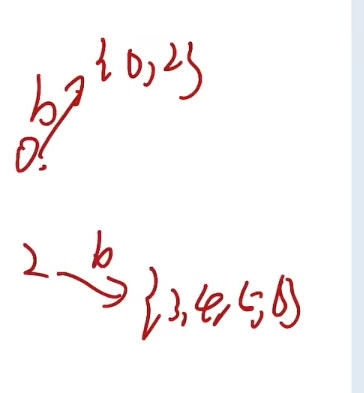 b {0,2}
0
2 b {3,4,5,6}